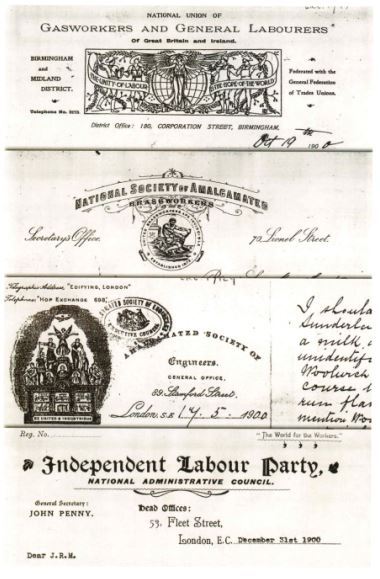 NATIONAL UNION OF
GASWORKERS AND GENERAL LABOURERS
Of Great Britain and Ireland.
BIRMINGHAM
and
MIDLAND
DISTRICT.
THE UNITY OF LABOUR
IS THE HOPE OF THE WORLD
Federated with the
General Federation
of Trades Unions.
District Office: 190, CORPORATION STREET, BIRMINGHAM,
Oct 19th 1900
NATIONAL SOCIETY OF AMALGAMATED
BRASSWORKERS
Secretary's Office,
70, Lionel Street.
Telegraphic Address, "EDIFYING, LONDON"
Telephone: "HOP EXCHANGE 698"
AMALGAMATED SOCIETY OF
Engineers.
GENERAL OFFICE,
89, Stamford Street,
London, S.E. 17. 5. 1900
BE UNITED & INDUSTRIOUS
I should
Sunderland
a milk
unidentif
Woolwich
course
rum
mention Woo
Reg. No.
"The World for the Workers."
Independent Labour Party,
NATIONAL ADMINISTRATIVE COUNCIL.
General Secretary:
JOHN PENNY.
Head Offices:
53, Fleet Street,
London, E.C. December 31st 1900
Dear J.R.M.